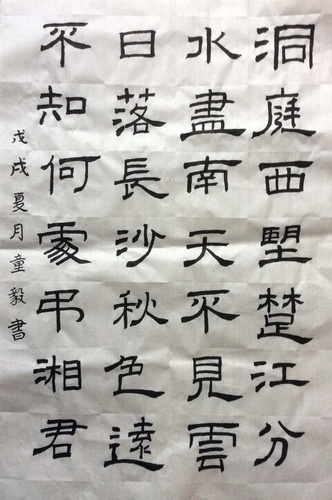 洞庭西望楚江分
水盡南天不見雲
日落長沙秋色遠
不知何處弔湘君
戊戌夏月童毅書